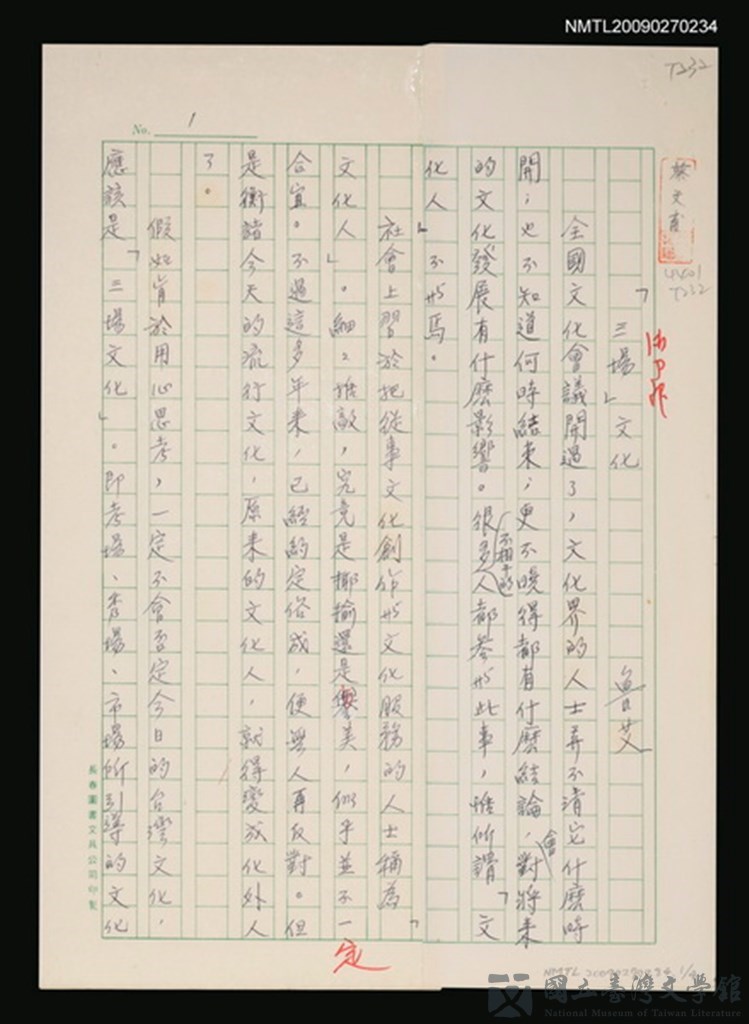 NMTL20090270234
T232
No. 1
蔡文甫
4401
T232
「三場」文化
魯艾
全國文化會議開過了,文化界的人士弄不清它什麼時
開;也不知道何時結束;更不曉得都有什麼結論,會對將來
的文化發展有什麼影響。很多不相干的人都參與此事,惟所謂「文
化人」不與焉。
社會上習於把從事文化創作與文化服務的人士稱為「
文化人」。細細推敲,究竟是揶揄還是譽美,似乎並不一定
合宜。不過這多年來,已經約定俗成,便無人再反對。但
是衡諸今天的流行文化,原來的文化人,就得變成化外人
了。
假如肯於用心思考,一定不會否定今日的台灣文化,
應該是「三場文化」。即考場、秀場、市場所引導的文化
長春圖書文具公司印製
NMTL 20090270234 1/4
國立臺灣文學館
National Museum of Taiwan Literature